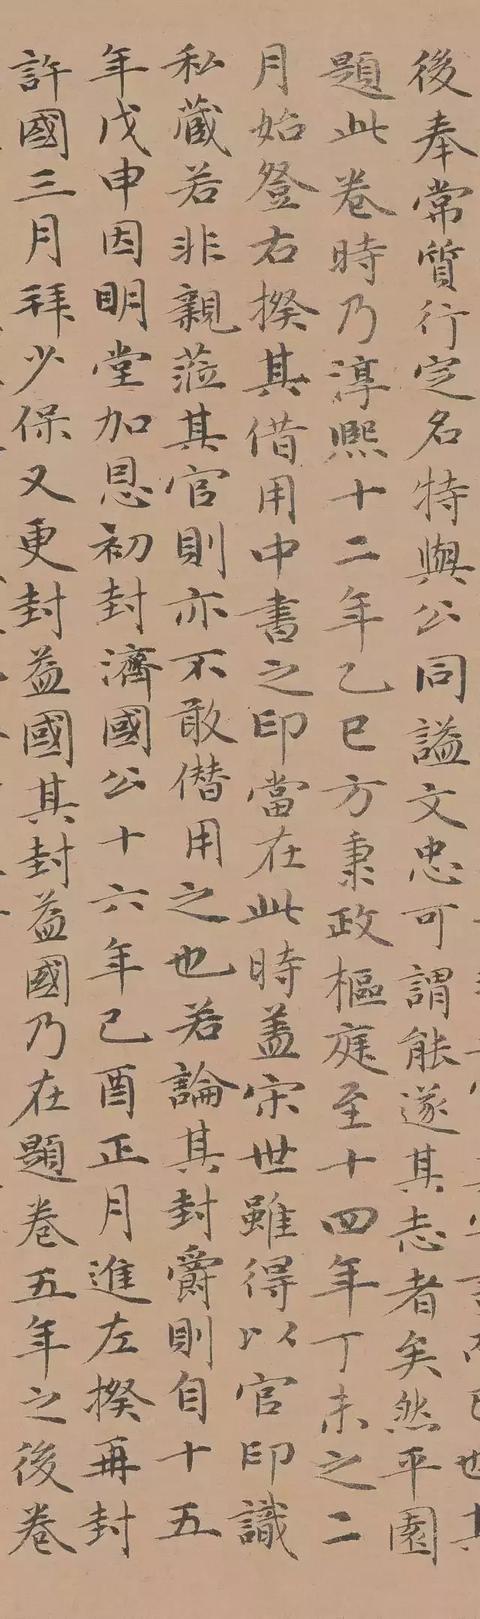 後奉常質行定名特與公同謚文忠可謂能遂其志者矣然平園
題此卷時乃淳熙十二年乙巳方秉政樞庭至十四年丁未之二
月始登右揆其借用中書之印當在此時蓋宋世雖得以官印識
私藏若非親蒞其官則亦不敢僭用之也若論其封爵則自十五
年戊申因明堂加恩初封濟國公十六年己酉正月進左揆再封
許國三月拜少保又更封益國其封益國乃在題卷五年之後卷